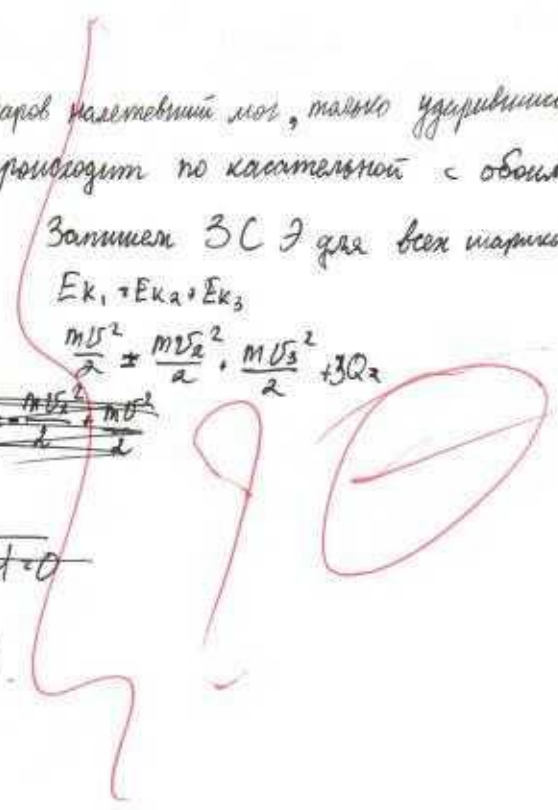 аров налетевший мог, только ударившись
происходит по касательной с обоим
Запишем ЗСЭ для всех шарико
Eк₁ = Eк₂ + Eк₃
mv²/2 = mv₂²/2 + mv₃²/2 + 3Q₂